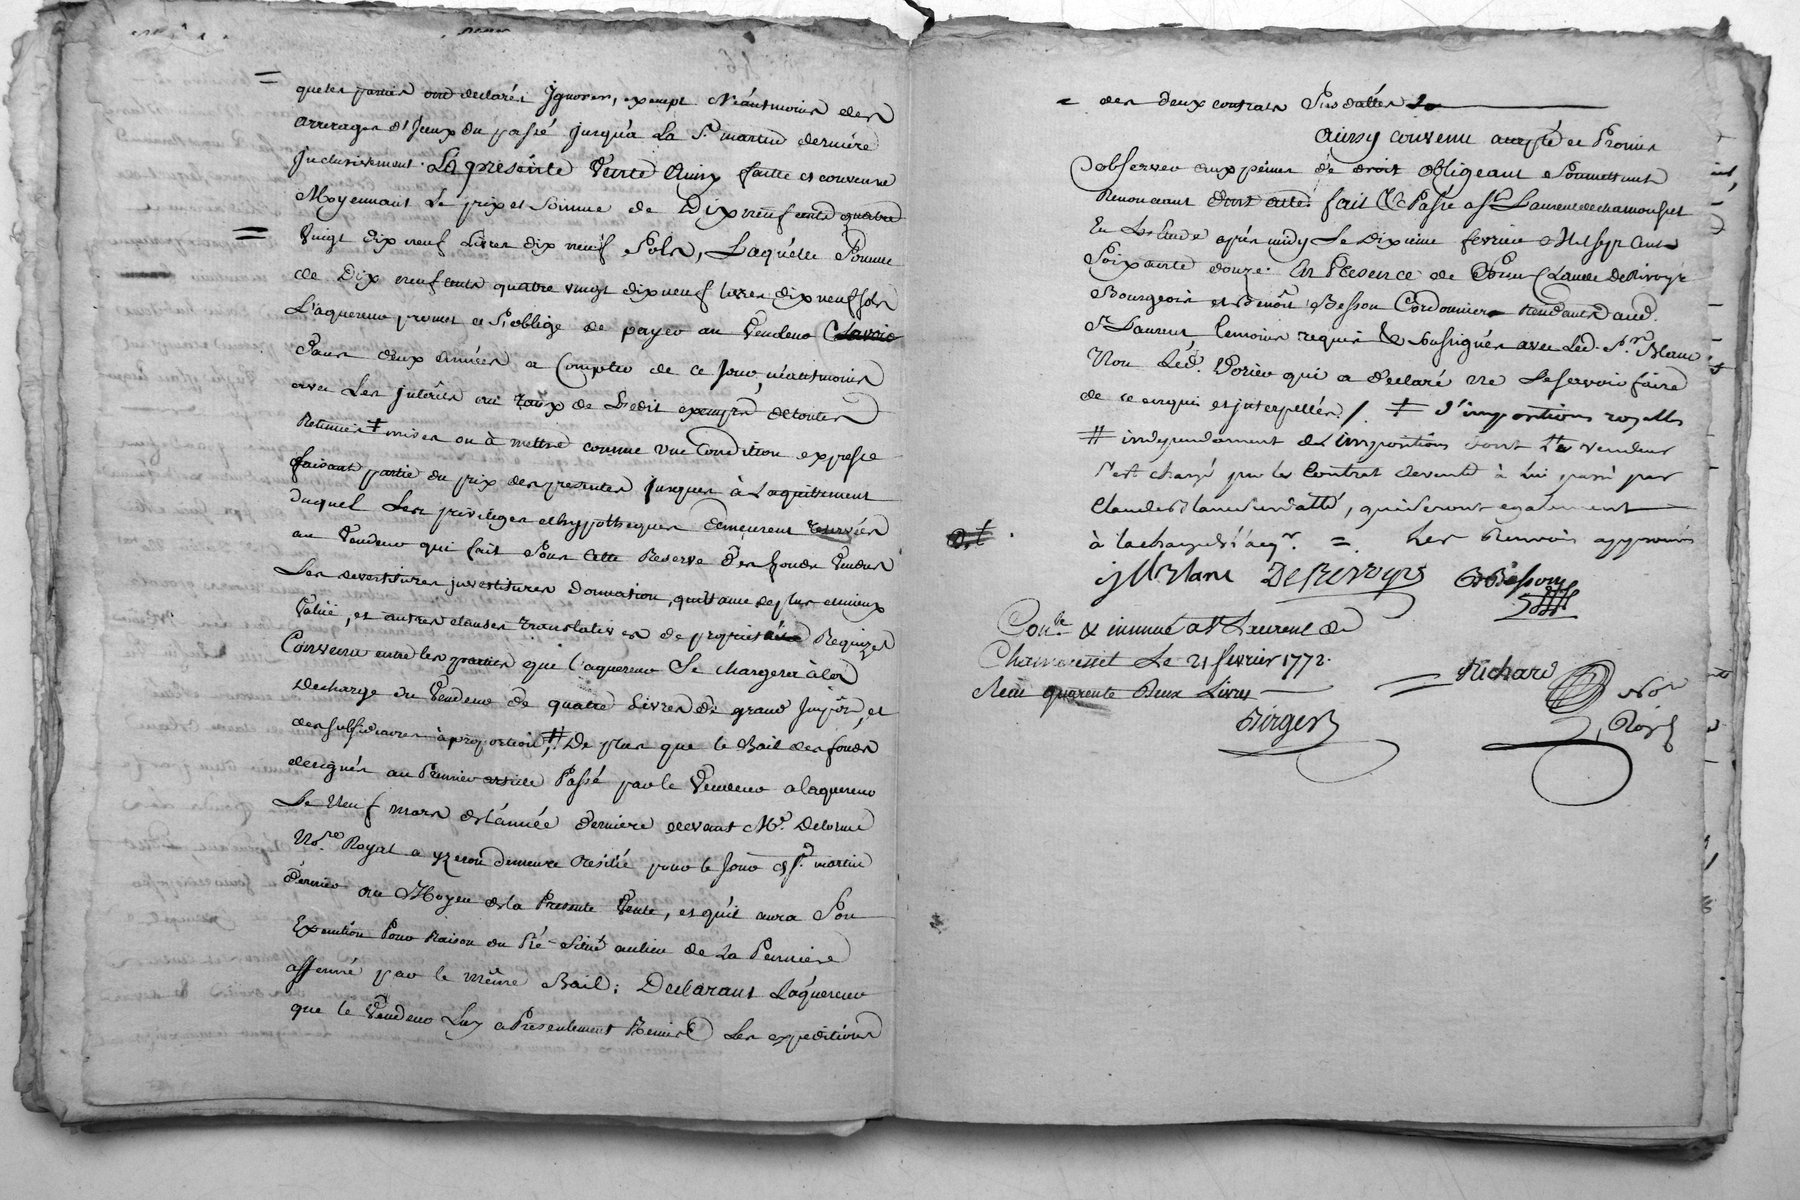 quelles parties ont declarés Ignorer, exempt Néantmoins des
arrerages d'Iceux du passé jusqu'a La St martin derniére
Inclusivement. La presente Vente Ainsy faitte et convenue
Moyennant Le prix et Somme de Dix neuf cents quatre
Vingt dix neuf Livres dix neuf Sols, Laquelle Somme
de Dix neuf cents quatre vingt dix neuf livres dix neuf sols
L'aquereur promet et S'oblige de payer au Vendeur
Dans deux années a Compter de ce Jour, néantmoins
avec Les Intérêts au taux de Ledit exempts de toutes
Retenues ‡ mises ou à mettre comme une Condition expresse
faisant partie du prix des presentes jusques à Laquittement
duquel Les privileges et hypotheques demeurent reservés
au Vendeur qui fait Sous Cette Reserve des fonds Vendus
Les devestitures investitures donnation, quittance de plus et mieux
Value, et autres clauses translatives de proprieté Requises
Convenu entre les parties que l'aquereur Se chargera à la
Decharge du Vendeur de quatre Livres de grand Impôt, et
des subsidiaires à proportion, # De plus que le Bail des fonds
designés au Premier article Passé par le Vendeur a laquereur
Le Neuf mars de l'année derniere devant Me. Delorme
Nore Royal a yzeron demeure résilié pour le Jour de St. martin
dernier au Moyen de la Presente Vente, et qu'il aura Son
Execution Pour Raison du Pré Situé au lieu de La Perriere
affermé par le même Bail; Declarant Laquereur
que le Vendeur Luy a Presentement Remis Les expeditions
= des deux contrats Susdattés
Ainsy convenu accepté et Promis
d'observer aux peines de droit obligeant Soumettant
Renonceant fait & Passé a St Laurent de chamousset
En L'Etude après midy Le Dixieme fevrier Mil sept cents
Soixante douze. En Presence de Sieur Claude DeRivoyre
Bourgeois et Benoît Besson Cordonnier Residants aud.
St Laurent, temoins requis & soussignés avec Led. Sr. Blanc
Non Led. Vorieu qui a declaré ne Le Sçavoir faire
de ce enquis et interpellés. / ‡ d'impositions royalles
# independament des impositions dont Le vendeur
s'est chargé par le Contrat devente à lui passé par
Claude Blanc susdatté, qui seront egalement
à la charge de l'aqr. = Les Renvois approuvés
Blanc DeRivoyre B Besson
Conlé & insinué a St Laurent de
Chamousset Le 21 fevrier 1772.
Reçu quarente Deux Livres
Richard
Nore
Royal